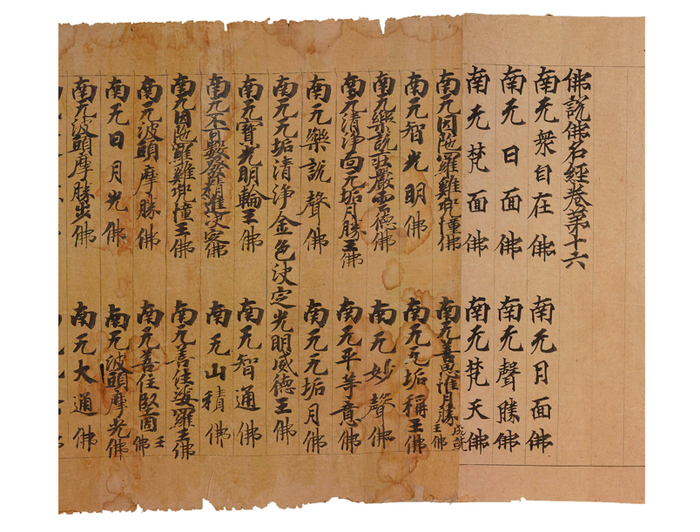 佛說佛名經卷第十六
南无衆自在佛 南无月面佛
南无日面佛 南无聲勝佛
南无梵面佛 南无梵天佛
南无因陁羅雞兜幢佛 南无善思惟月勝成就王佛
南无智光明佛 南无无垢稱王佛
南无樂說莊嚴雲德佛 南无妙聲佛
南无清淨面无垢月勝王佛 南无平等意佛
南无樂說聲佛 南无无垢月佛
南无无垢清淨金色決定光明威德王佛
南无寶光明輪王佛 南无智通佛
南无不可數發精進決定佛 南无山積佛
南无因陁羅雞兜幢王佛 南无善住娑羅王佛
南无波頭摩勝佛 南无善住堅固王佛
南无日月光佛 南无波頭摩光佛
南无波頭摩勝出佛 南无大通佛